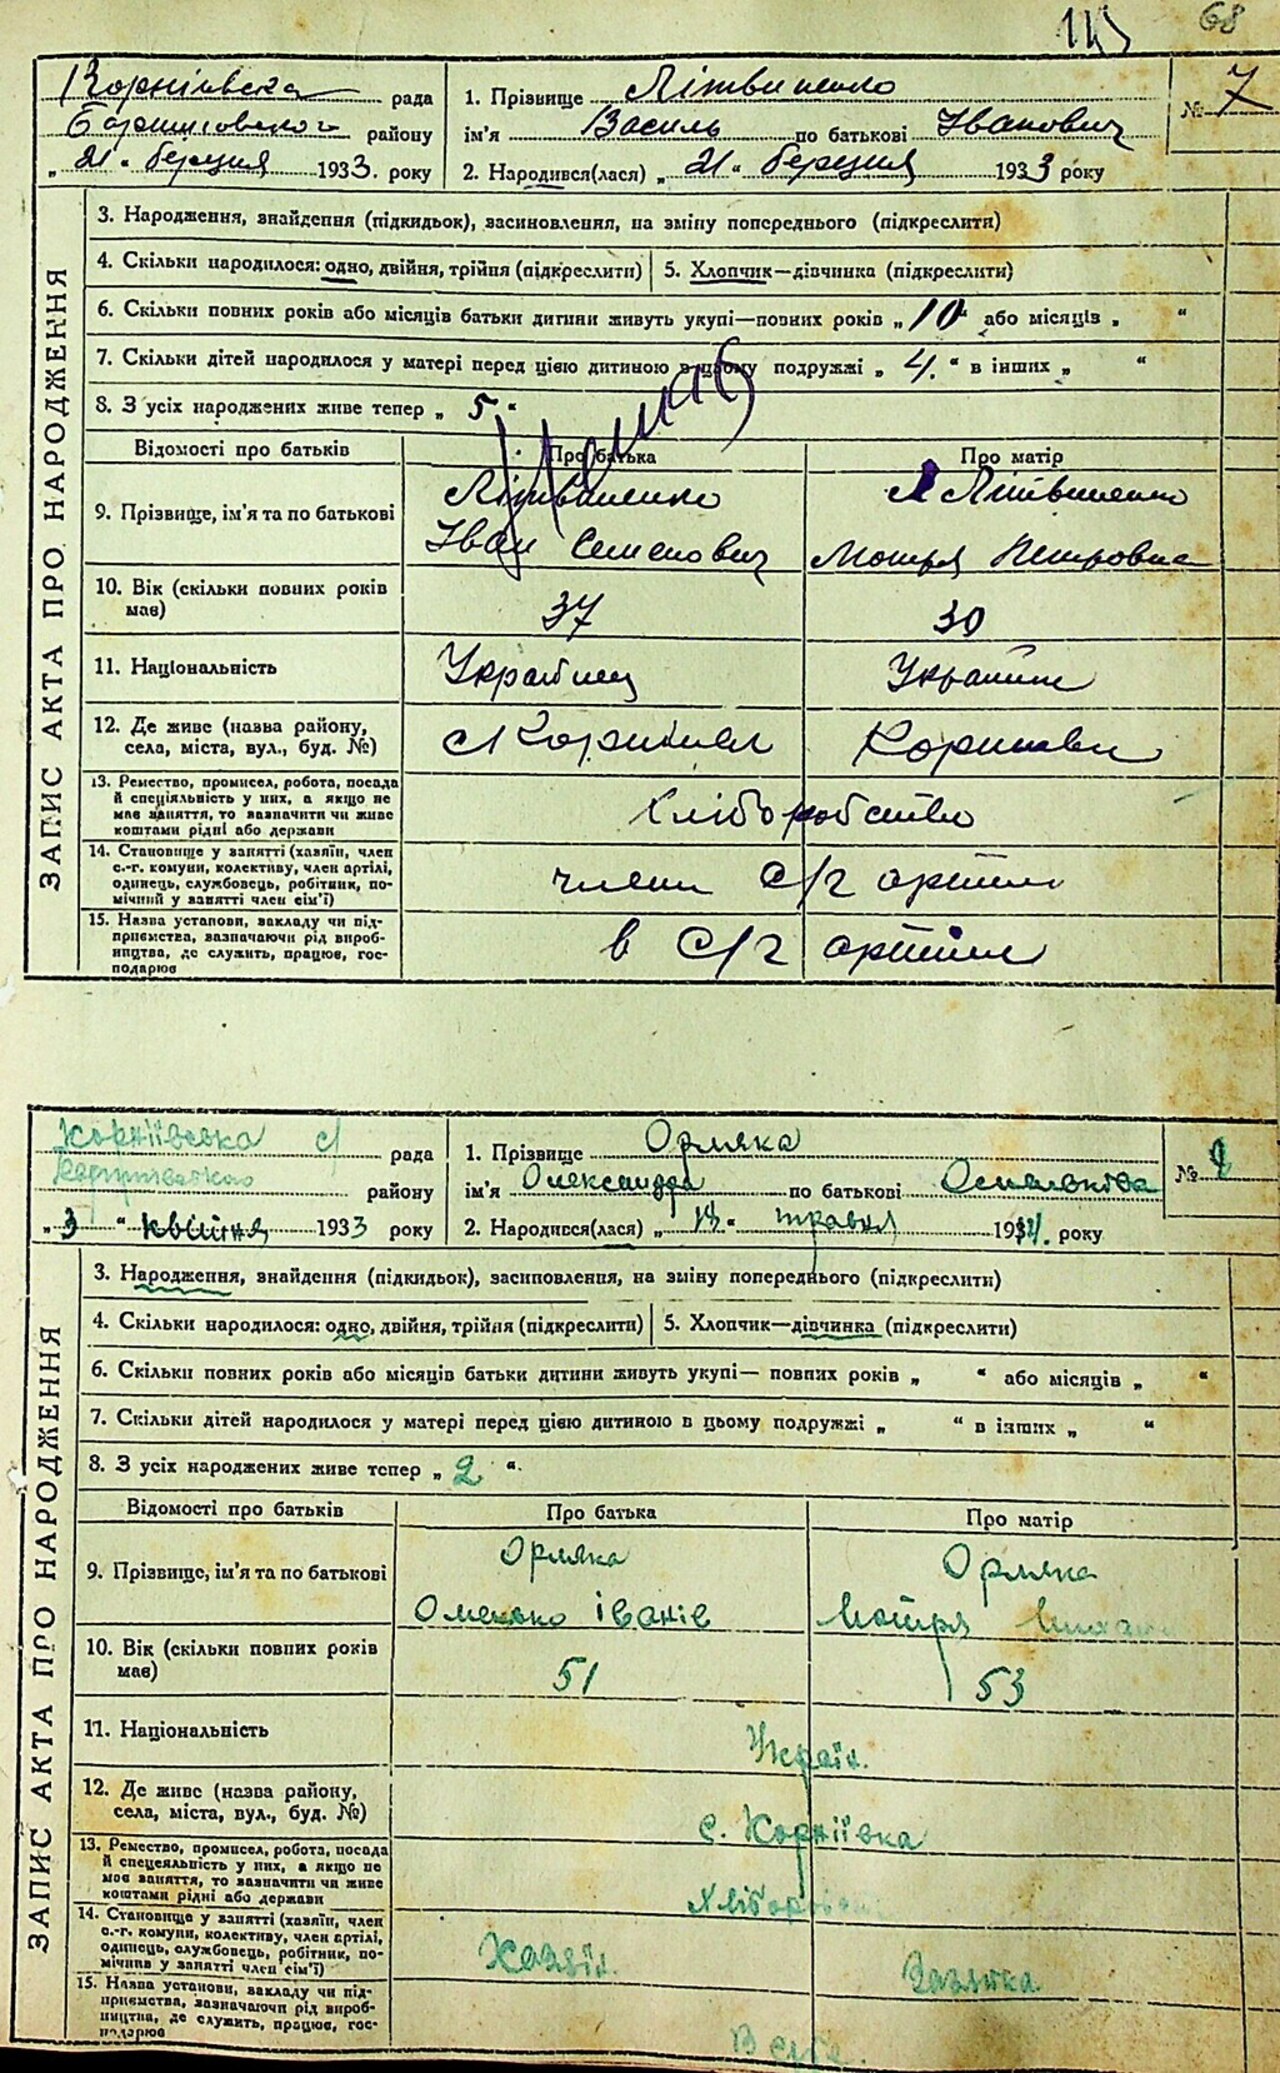 68
Корніівська рада
Баришівського району
„ 21 “ березня 1933. року
1. Прізвище Літвиненко
ім'я Василь по батькові Іванович
2. Народився(лася) „ 21 “ березня 1933 року
№ 7
ЗАПИС АКТА ПРО НАРОДЖЕННЯ
3. Народження, знайдення (підкидьок), засиновлення, на зміну попереднього (підкреслити)
4. Скільки народилося: одно, двійня, трійня (підкреслити) 5. Хлопчик—дівчинка (підкреслити)
6. Скільки повних років або місяців батьки дитини живуть укупі—повних років „ 10 “ або місяців „ “
7. Скільки дітей народилося у матері перед цією дитиною в цьому подружжі „ 4. “ в інших „ “
8. З усіх народжених живе тепер „ 5 “
Відомості про батьків Про батька Про матір
9. Прізвище, ім'я та по батькові Літвиненко Іван Семенович Літвиненко Мотря Петровна
10. Вік (скільки повних років має) 37 30
11. Національність Українец Українка
12. Де живе (назва району, села, міста, вул., буд. №) с Корніівка Корніівка
13. Ремество, промисел, робота, посада й спеціяльність у них, а якщо не має заняття, то зазначити чи живе коштами рідні або держави Хліборобство
14. Становище у занятті (хазяїн, член с.-г. комуни, колективу, член артілі, одинець, службовець, робітник, помічний у занятті член сім'ї) члени с/г артіли
15. Назва установи, закладу чи підприємства, зазначаючи рід виробництва, де служить, працює, господарює в с/г артіли
Корніївська с/ рада
району
„ 3 “ квітня 1933 року
1. Прізвище Орляка
ім'я Олександра по батькові
2. Народився(лася) „ 13 “ травня року
№
ЗАПИС АКТА ПРО НАРОДЖЕННЯ
3. Народження, знайдення (підкидьок), засиповлення, на зміну попереднього (підкреслити)
4. Скільки народилося: одно, двійня, трійня (підкреслити) 5. Хлопчик—дівчинка (підкреслити)
6. Скільки повних років або місяців батьки дитини живуть укупі— повних років „ “ або місяців „ “
7. Скільки дітей народилося у матері перед цією дитиною в цьому подружжі „ “ в інших „ “
8. З усіх народжених живе тепер „ 2 “
Відомості про батьків Про батька Про матір
9. Прізвище, ім'я та по батькові Орляка Омелько Іванів Орляка Мотря
10. Вік (скільки повних років має) 51 53
11. Національність Україн.
12. Де живе (назва району, села, міста, вул., буд. №) с. Корніївка
13. Ремество, промисел, робота, посада й спецеяльність у них, а якщо не має заняття, то зазначити чи живе коштами рідні або держави
14. Становище у занятті (хазяїн, член с.-г. комуни, колективу, член артілі, одинець, службовець, робітник, помічник у занятті член сім'ї) Хазяїн.
15. Назва установи, закладу чи підприємства, зазначаючи рід виробництва, де служить, працює, господарює В себе.